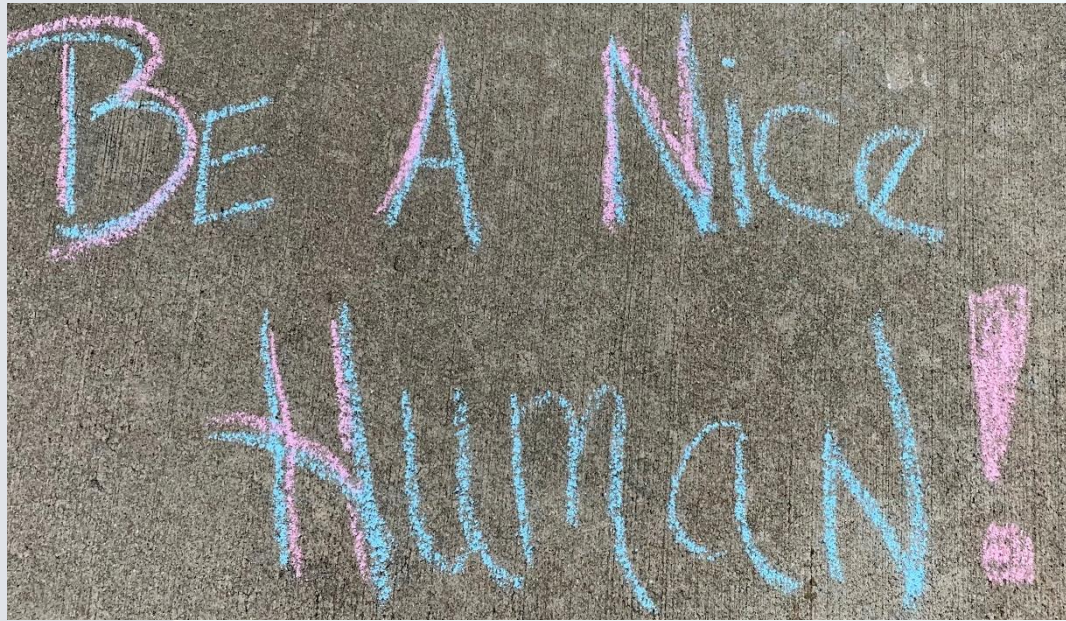 BE A Nice
HumaN!